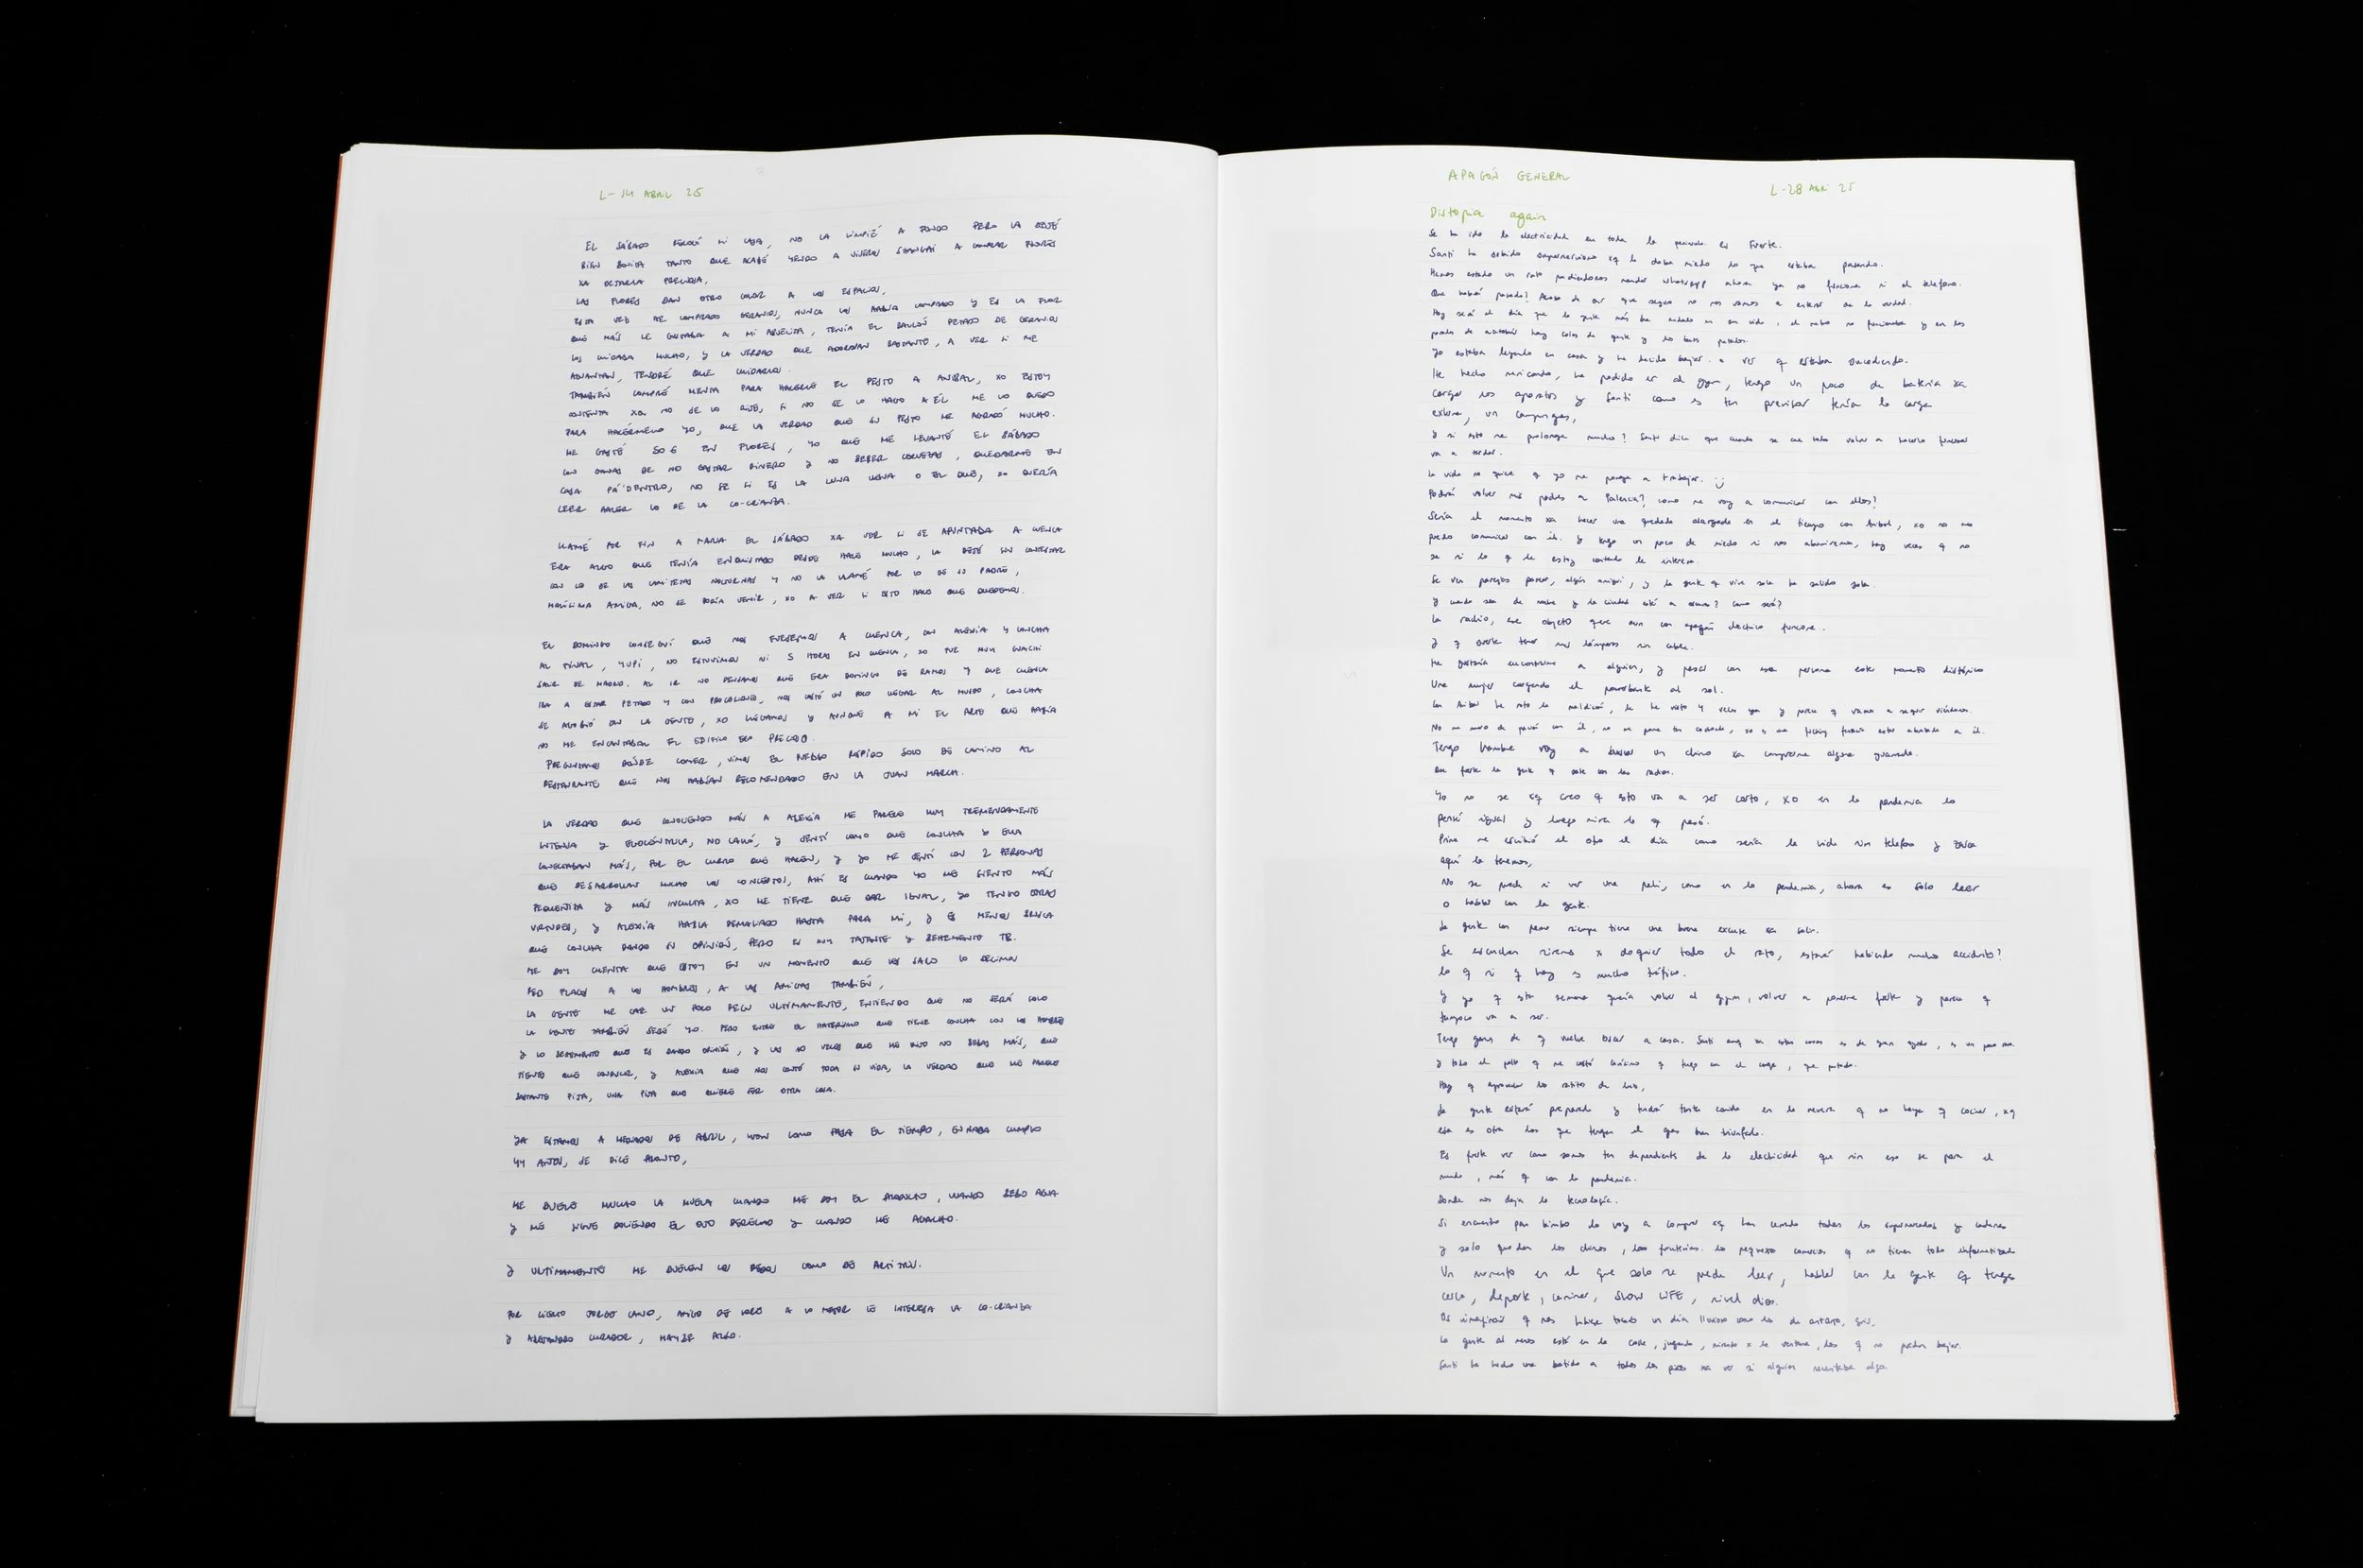 L-14 ABRIL 25
EL SÁBADO RECOGÍ MI CASA, NO LA LIMPIÉ A FONDO PERO LA DEJÉ
BIEN BONITA TANTO QUE ACABÉ YENDO A VIVEROS SHANGAI A COMPRAR FLORES
XA DEJARLA PRECIOSA,
LAS FLORES DAN OTRO COLOR A LOS ESPACIOS,
ESTA VEZ HE COMPRADO GERANIOS, NUNCA LOS HABÍA COMPRADO Y ES LA FLOR
QUE MÁS LE GUSTABA A MI ABUELITA, TENÍA EL BALCÓN PETADO DE GERANIOS
LOS CUIDABA MUCHO, Y LA VERDAD QUE ADORNAN BASTANTE, A VER SI ME
AGUANTAN, TENDRÉ QUE CUIDARLOS.
TAMBIÉN COMPRÉ MENTA PARA HACERLE EL PESTO A ANIBAL, XO ESTOY
CONTENTA XQ NO SE LO DIJE, SI NO SE LO HAGO A ÉL ME LO QUEDO
PARA HACÉRMELO YO, QUE LA VERDAD QUE SU PESTO ME AGRADÓ MUCHO.
ME GASTÉ 50 € EN FLORES, YO QUE ME LEVANTÉ EL SÁBADO
CON GANAS DE NO GASTAR DINERO Y NO BEBER CERVEZAS, QUEDARME EN
CASA PA'DENTRO, NO SE SI ES LA LUNA LLENA O EL QUE, XO QUERÍA
LEER ACERCA LO DE LA CO-CRIANZA.
LLAMÉ POR FIN A MARIA EL SÁBADO XA VER SI SE APUNTABA A CUENCA
ERA ALGO QUE TENÍA ENQUISTADO DESDE HACE MUCHO, LA DEJÉ SIN CONTESTAR
CON LO DE LAS CAMISETAS NOCTURNAS Y NO LA LLAMÉ POR LO DE SU PADRE,
MALÍSIMA AMIGA, NO SE PODÍA VENIR, XO A VER SI ESTO HACE QUE QUEDEMOS.
EL DOMINGO CONSEGUÍ QUE NOS FUÉSEMOS A CUENCA, CON ALEXIA Y CONCHA
AL FINAL, YUPI, NO ESTUVIMOS NI 5 HORAS EN CUENCA, XO FUE MUY GUACHI
SALIR DE MADRID. AL IR NO PENSAMOS QUE ERA DOMINGO DE RAMOS Y QUE CUENCA
IBA A ESTAR PETADO Y CON PROCESIONES, NOS COSTÓ UN POCO LLEGAR AL MUSEO, CONCHA
SE AGOBIÓ CON LA GENTE, XO LLEGAMOS Y AUNQUE A MI EL ARTE QUE HABÍA
NO ME ENCANTABA, EL EDIFICIO ERA PRECIOSO.
PREGUNTAMOS DÓNDE COMER, VIMOS EL PUEBLO RÁPIDO SOLO DE CAMINO AL
RESTAURANTE QUE NOS HABÍAN RECOMENDADO EN LA JUAN MARCH.
LA VERDAD QUE CONOCIENDO MÁS A ALEXIA ME PARECE MUY TREMENDAMENTE
INTENSA Y EGOCÉNTRICA, NO CALLÓ, Y SENTÍ COMO QUE CONCHA Y ELLA
CONECTABAN MÁS, POR EL CURRO QUE HACEN, Y YO ME SENTÍ CON 2 PERSONAS
QUE DESARROLLAN MUCHO LOS CONCEPTOS, AHÍ ES CUANDO YO ME SIENTO MÁS
PEQUEÑITA Y MÁS INCULTA, XO ME TIENE QUE DAR IGUAL, YO TENGO OTRAS
VIRTUDES, Y ALEXIA HABLA DEMASIADO HASTA PARA MI, Y ES MENOS BRUSCA
QUE CONCHA DANDO SU OPINIÓN, PERO ES MUY TAJANTE Y VEHEMENTE TB.
ME DOY CUENTA QUE ESTOY EN UN MOMENTO QUE LOS SACO LO DECIMOS
RED FLAGS A LOS HOMBRES, A LAS AMIGAS TAMBIÉN,
LA GENTE ME CAE UN POCO REGU ULTIMAMENTE, ENTIENDO QUE NO SERÁ SOLO
LA GENTE TAMBIÉN SERÉ YO. PERO ENTRE EL QUE TIENE CONCHA CON LOS HOMBRES
Y LO VEHEMENTE QUE ES DANDO OPINIÓN, Y LAS 10 VECES QUE ME DIJO NO BEBAS MÁS, QUE
TIENES QUE CONDUCIR, Y ALEXIA QUE NOS CONTÓ TODA SU VIDA, LA VERDAD QUE ME PARECE
BASTANTE PIJA, UNA PIJA QUE QUIERE SER OTRA COSA.
YA ESTAMOS A MEDIADOS DE ABRIL, WOW COMO PASA EL TIEMPO, EN NADA CUMPLO
44 AÑOS, SE DICE PRONTO,
ME DUELE MUCHO LA MUELA CUANDO ME DOY EL, CUANDO BEBO AGUA
Y ME SIGUE DOLIENDO EL OJO DERECHO Y CUANDO ME AGACHO.
Y ULTIMAMENTE ME DUELEN LOS DEDOS COMO DE ARTITRIS.
POR CIERTO JORGE CANO, AMIGO DE A LO MEJOR LE INTERESA LA CO-CRIANZA
Y ALEJANDRO CURADOR, MAYBE ALGO.
APAGÓN GENERAL
L-28 ABRI 25
Distopia again
Se ha ido la electricidad en toda la península es Fuerte.
Santi ha subido supernervioso xq le daba miedo lo que estaba pasando.
Hemos estado un rato pudiéndonos mandar whatsapp ahora ya no funciona ni el telefono.
Que habrá pasado? Acabo de oir que seguro no nos vamos a enterar de la verdad.
Hoy será el día que la gente más ha andado en su vida, el metro no funcionaba y en las
paradas de autobús hay colas de gente y los buses petados.
Yo estaba leyendo en casa y he decido bajar a ver q estaba sucediendo.
He hecho mexicando, he podido ir al gym, tengo un poco de batería xa
cargar los aparatos y Santi como es tan previsor tenía la carga
externa, un campingas,
Y si esto se prolonga mucho? Santi dice que cuando se cae todo volver a hacerlo funcionar
va a tardar.
La vida no quiere q yo me ponga a trabajar. :)
Podrán volver mis padres a Palencia? como me voy a comunicar con ellos?
Sería el momento xa hacer una quedada alargada en el tiempo con Anibal, xo no me
puedo comunicar con él. Y tengo un poco de miedo si nos aburriremos, hay veces q no
se si lo q le estoy contando le interesa.
Se ven parejas pasear, algún amigui, y la gente q vive sola ha salido sola.
Y cuando sea de noche y la ciudad esté a oscuras? Como será?
La radio, ese objeto que aun con apagón electrico funciona.
Y q suerte tener mis lámparas sin cable.
Me gustaría encontrarme a alguien, y pasar con esa persona este momento distópico
Una mujer cargando el powerbank al sol.
Con Anibal he roto la maldición, le he visto 4 veces ya y parece q vamos a seguir viéndonos.
No me muero de pavor con él, no me pone tan cachonda, xo es me fucking fantasía estar abrazada a él.
Tengo hambre voy a buscar un chino xa comprarme alguna guarrada.
Que fuerte la gente q sale con las radios.
Yo no se xq creo q esto va a ser corto, xo en la pandemia lo
pensé igual y luego mira lo q pasó.
Prima me escribió el otro el día como sería la vida sin telefono y
aquí lo tenemos,
No se puede ni ver una peli, como en la pandemia, ahora es solo leer
o hablar con la gente.
La gente con perro siempre tiene una buena excusa xa salir.
Se escuchan sirenas x doquier todo el rato, estará habiendo mucho accidente?
lo q si q hay es mucho tráfico.
Y yo q esta semana quería volver al gym, volver a ponerme fuerte y parece q
tampoco va a ser.
Tengo ganas de q vuelva Oscar a casa. Santi aunq xa estas cosas es de gran ayuda, es un
Y todo el pollo q me costó carísimo q tengo en el congo, que putada.
Hay q aprovechar los ratitos de luz,
La gente estará preparada y tendrá tanta comida en la nevera q no haya q cocinar, xq
esa es otra los que tengan el gas han triunfado.
Es fuerte ver como somos tan dependients de la electricidad que sin eso se para el
mundo, más q con la pandemia.
Donde nos deja la tecnología.
Si encuentro pan bimbo lo voy a comprar xq han cerrado todos los supermercados y cadenas
y solo quedan los chinos, las fruterías. los pequeños comercios q no tienen todo informatizado
Un momento en el que solo se puede leer, hablar con la gente q tengo
cerca, deporte, caminar, SLOW LIFE, nivel dios.
Os imagináis q nos hubiese tocado un día lluvioso como los de antes, gris,
La gente al menos está en la calle, jugando, mirando x la ventana, los q no pueden bajar.
Santi ha hecho una batida a todos los pisos xa ver si alguien necesitaba algo